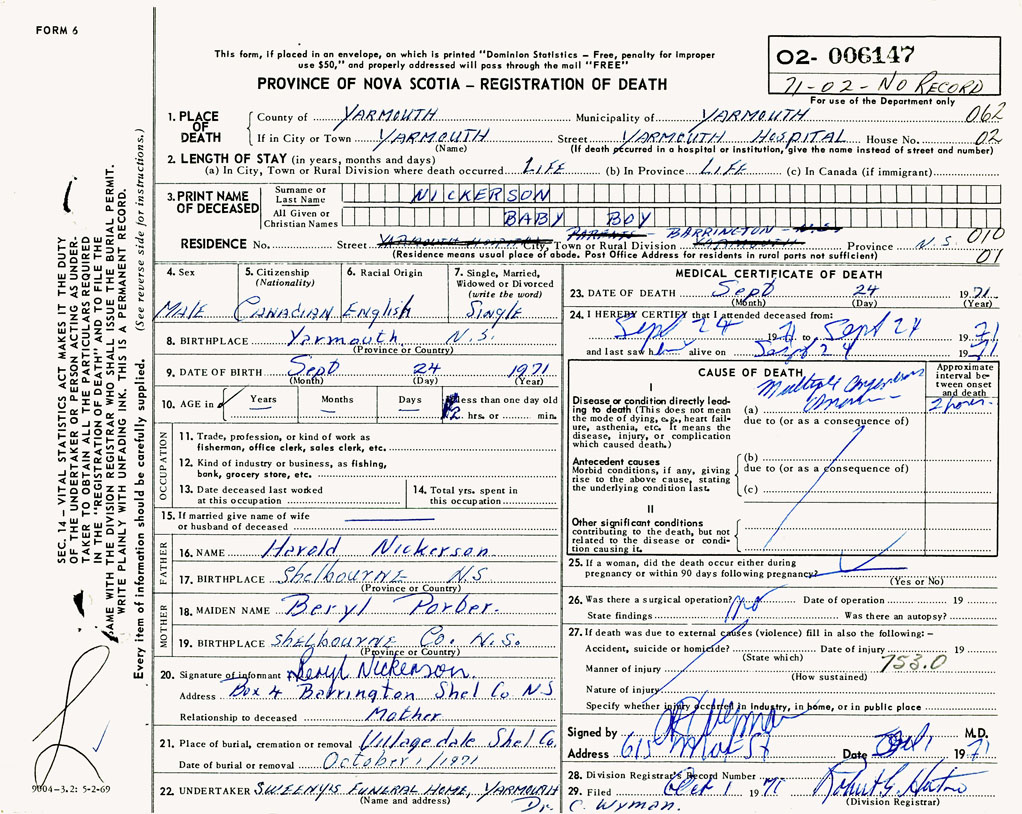 FORM 6
This form, if placed in an envelope, on which is printed "Dominion Statistics – Free, penalty for improper
use $50," and properly addressed will pass through the mail "FREE"
PROVINCE OF NOVA SCOTIA – REGISTRATION OF DEATH
02- 006147
71-02-NO RECORD
For use of the Department only
1. PLACE OF DEATH
County of YARMOUTH Municipality of YARMOUTH 062
If in City or Town YARMOUTH Street YARMOUTH HOSPITAL House No. 02
(Name) (If death occurred in a hospital or institution, give the name instead of street and number)
2. LENGTH OF STAY (in years, months and days)
(a) In City, Town or Rural Division where death occurred LIFE (b) In Province LIFE (c) In Canada (if immigrant)
3. PRINT NAME OF DECEASED
Surname or Last Name NICKERSON
All Given or Christian Names BABY BOY
PARENTS - BARRINGTON - N.S. 010
RESIDENCE No. Street YARMOUTH HOSPITAL City, Town or Rural Division YARMOUTH Province N.S. 01
(Residence means usual place of abode. Post Office Address for residents in rural parts not sufficient)
4. Sex
MALE
5. Citizenship (Nationality)
CANADIAN
6. Racial Origin
English
7. Single, Married, Widowed or Divorced (write the word)
Single
8. BIRTHPLACE Yarmouth N.S.
(Province or Country)
9. DATE OF BIRTH Sept 24 1971
(Month) (Day) (Year)
10. AGE in Years Months Days Less than one day old
2 hrs. or min.
OCCUPATION
11. Trade, profession, or kind of work as
fisherman, office clerk, sales clerk, etc.
12. Kind of industry or business, as fishing,
bank, grocery store, etc.
13. Date deceased last worked
at this occupation
14. Total yrs. spent in
this occupation
15. If married give name of wife
or husband of deceased
FATHER
16. NAME Harold Nickerson
17. BIRTHPLACE Shelbourne N.S
(Province or Country)
MOTHER
18. MAIDEN NAME Beryl Porber.
19. BIRTHPLACE Shelbourne Co. N.S.
(Province or Country)
20. Signature of informant Beryl Nickerson.
Address Box 4 Barrington Shel Co N S
Relationship to deceased Mother
21. Place of burial, cremation or removal Villagedale Shel Co.
Date of burial or removal October 1/1971
22. UNDERTAKER SWEENY'S FUNERAL HOME, YARMOUTH
(Name and address)
MEDICAL CERTIFICATE OF DEATH
23. DATE OF DEATH Sept 24 1971
(Month) (Day) (Year)
24. I HEREBY CERTIFY that I attended deceased from:
Sept 24 71 to Sept 24 71
and last saw him alive on Sept 24 1971
CAUSE OF DEATH
Approximate
interval be-
tween onset
and death
I
Disease or condition directly lead-
ing to death (This does not mean
the mode of dying, e.g., heart fail-
ure, asthenia, etc. It means the
disease, injury, or complication
which caused death.)
(a) Multiple 2 hours
due to (or as a consequence of)
Antecedent causes
Morbid conditions, if any, giving
rise to the above cause, stating
the underlying condition last.
(b)
due to (or as a consequence of)
(c)
II
Other significant conditions
contributing to the death, but not
related to the disease or condi-
tion causing it.
25. If a woman, did the death occur either during
pregnancy or within 90 days following pregnancy?
(Yes or No)
26. Was there a surgical operation? no Date of operation 19
State findings Was there an autopsy?
27. If death was due to external causes (violence) fill in also the following: –
Accident, suicide or homicide? Date of injury 19
(State which)
Manner of injury 753.0
(How sustained)
Nature of injury
Specify whether injury occurred in industry, in home, or in public place
Signed by Wyman M.D.
Address 615 Main St Date Oct 1 1971
28. Division Registrar's Record Number
29. Filed Oct 1 1971 Robert G.
(Division Registrar)
Dr. C. Wyman.
SEC. 14 – VITAL STATISTICS ACT MAKES IT THE DUTY
OF THE UNDERTAKER OR PERSON ACTING AS UNDER-
TAKER TO OBTAIN ALL THE PARTICULARS REQUIRED
IN THE "REGISTRATION OF DEATH" AND TO FILE THE
SAME WITH DIVISION REGISTRAR WHO SHALL ISSUE THE BURIAL PERMIT.
WRITE PLAINLY WITH UNFADING INK. THIS IS A PERMANENT RECORD.
Every item of information should be carefully supplied. (See reverse side for instructions.)
9004-3.2: 5-2-69